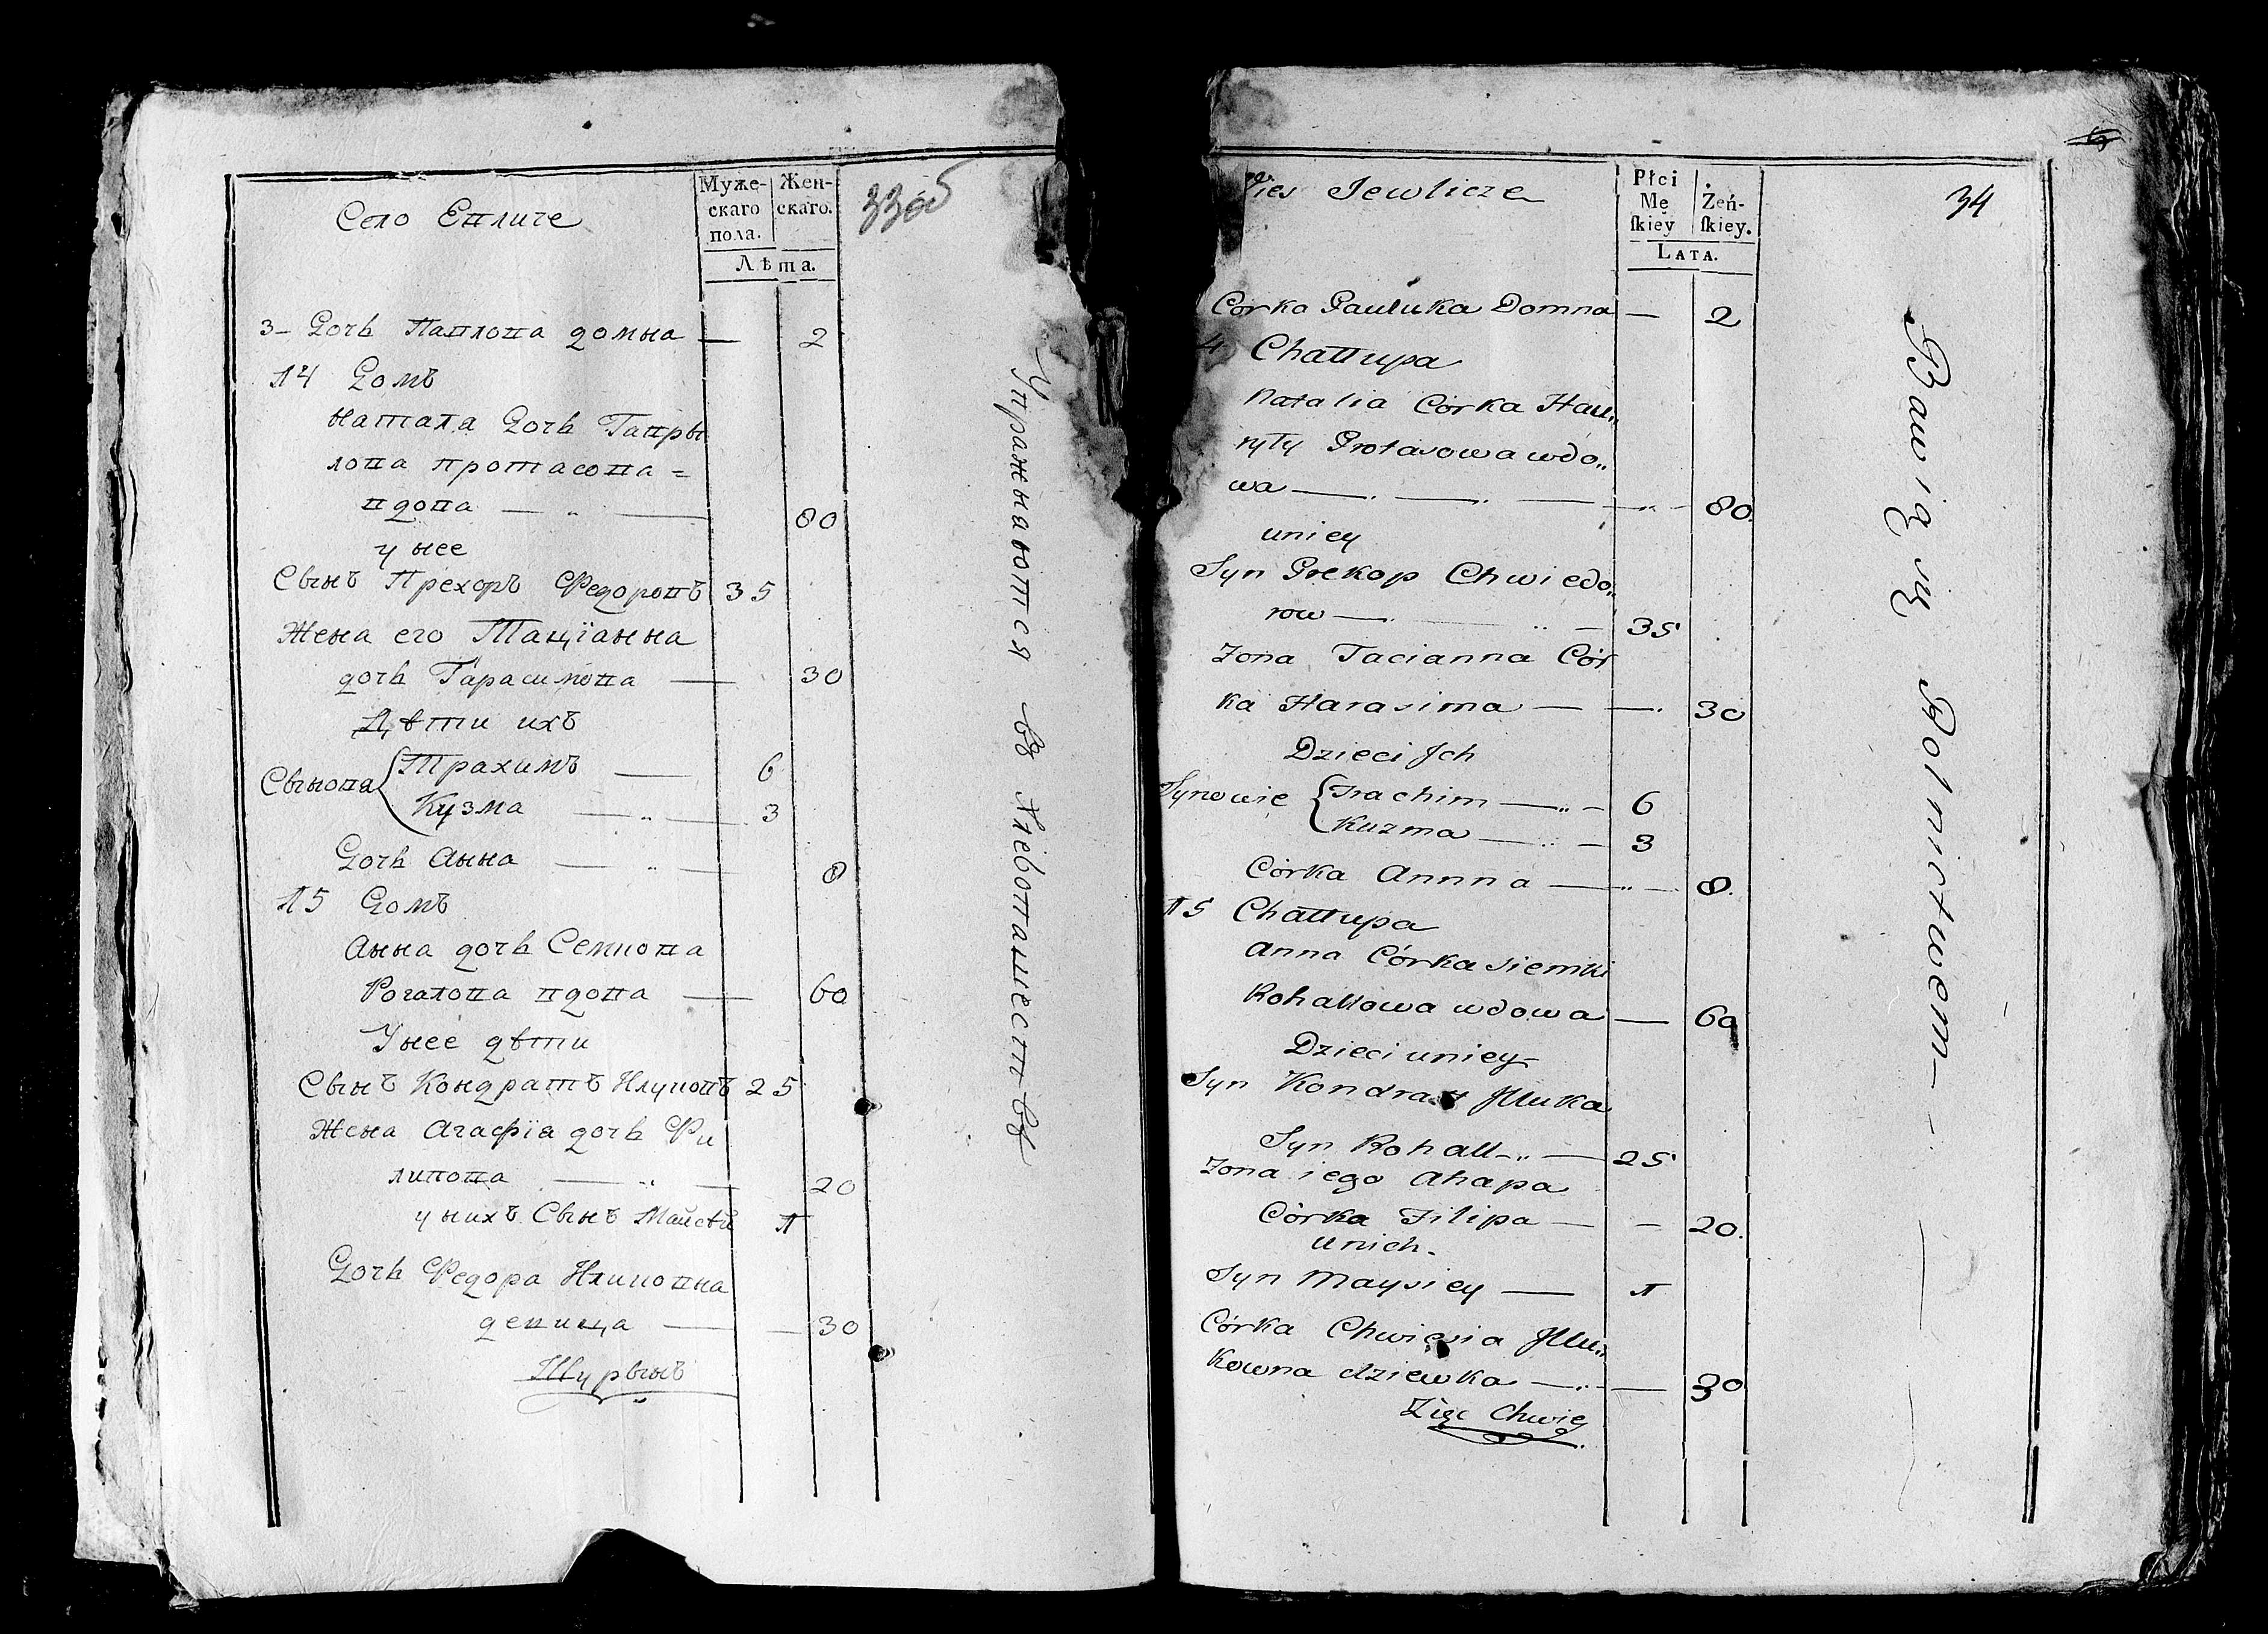 Село Евличе
Муже-
скаго
пола.
Жен-
скаго.
Лѣта.
33об
3- Дочь Павлова Домна — 2
14 Домъ
Натала Дочь Гаври
лова Протасова =
вдова — „ — 80
у нее
Сынъ Прехоръ Федоровъ 35
Жена его Тацїанна
дочь Гарасимова — 30
Дѣти ихъ
Сынова { Трахимъ — 6
Кузма — „ — 3
Дочь Анна — „ — 8
15 Домъ
Анна дочь Семиона
Рогалова вдова — 60
У нее дѣти
Сынъ Кондратъ Илуиовъ 25
Жена Агафїа дочь Фи
липова — „ — 20
у нихъ Сынъ Майсѣй 1
Дочь Федора Илиновна
девица — — 30
Шурынъ
Упражнаются въ Хлебопашествѣ
Wies Jewlicze
Płci
Mę
ſkiey
Żeń-
ſkiey.
LATA.
34
Corka Pauluka Domna — 2
4 Chałłupa
Natalia Córka Hau„
ryły Protasowa wdo„
wa — . — . — „ - 80.
uniey
Syn Prekop Chwiedo„
row — . „ — 35
Zona Tacianna Cór
ka Harasima — — . 30
Dzieci Jch
Synowie { Trachim — „ - 6
Kuzma — „ — 3
Córka Annna — „ — 8.
15 Chałłupa
Anna Córka Siemki
Rohallowa wdowa — 60
Dzieci uniey
Syn Kondrat Jlluka
Syn Rohall - „ — 25
Zona iego Ahapa
Córka Filipa — - 20.
unich.
Syn Maysiey — 1
Córka Chwiesia Jllu„
kowna dziewka — „ - — 30
Zięc Chwie
Bawią się Rolnictwem — - -